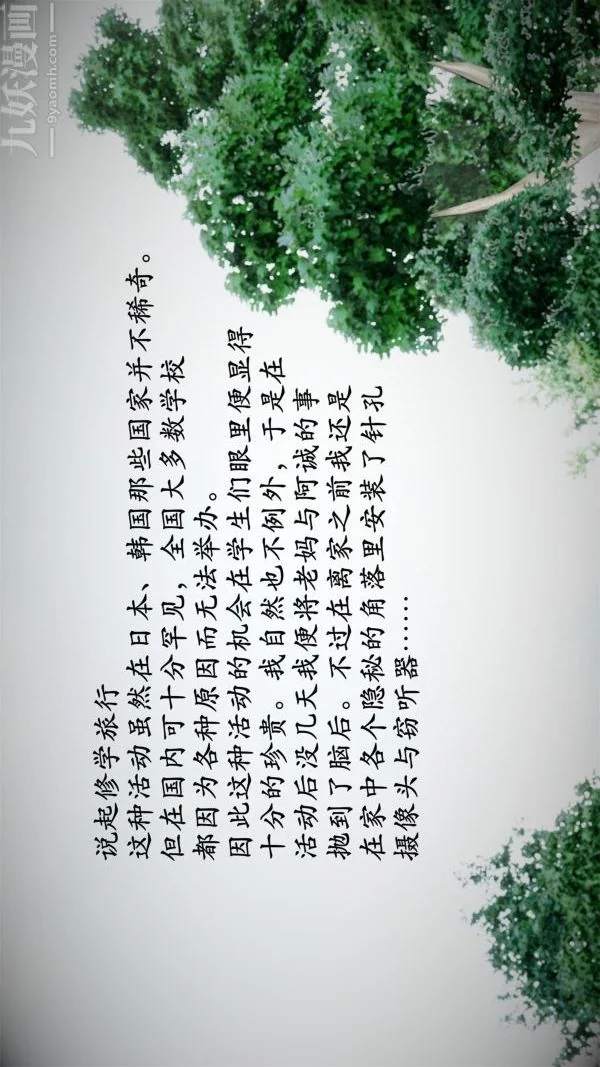 九妖漫画
9yaomh.com
说起修学旅行
这种活动虽然在日本、韩国那些国家并不稀奇。
但在国内可十分罕见，全国大多数学校
都因为各种原因而无法举办。
因此这种活动的机会在学生们眼里便显得
十分的珍贵。我自然也不例外，于是在
活动后没几天我便将老妈与阿诚的事
抛到了脑后。不过在离家之前我还是
在家中各个隐秘的角落里安装了针孔
摄像头与窃听器……